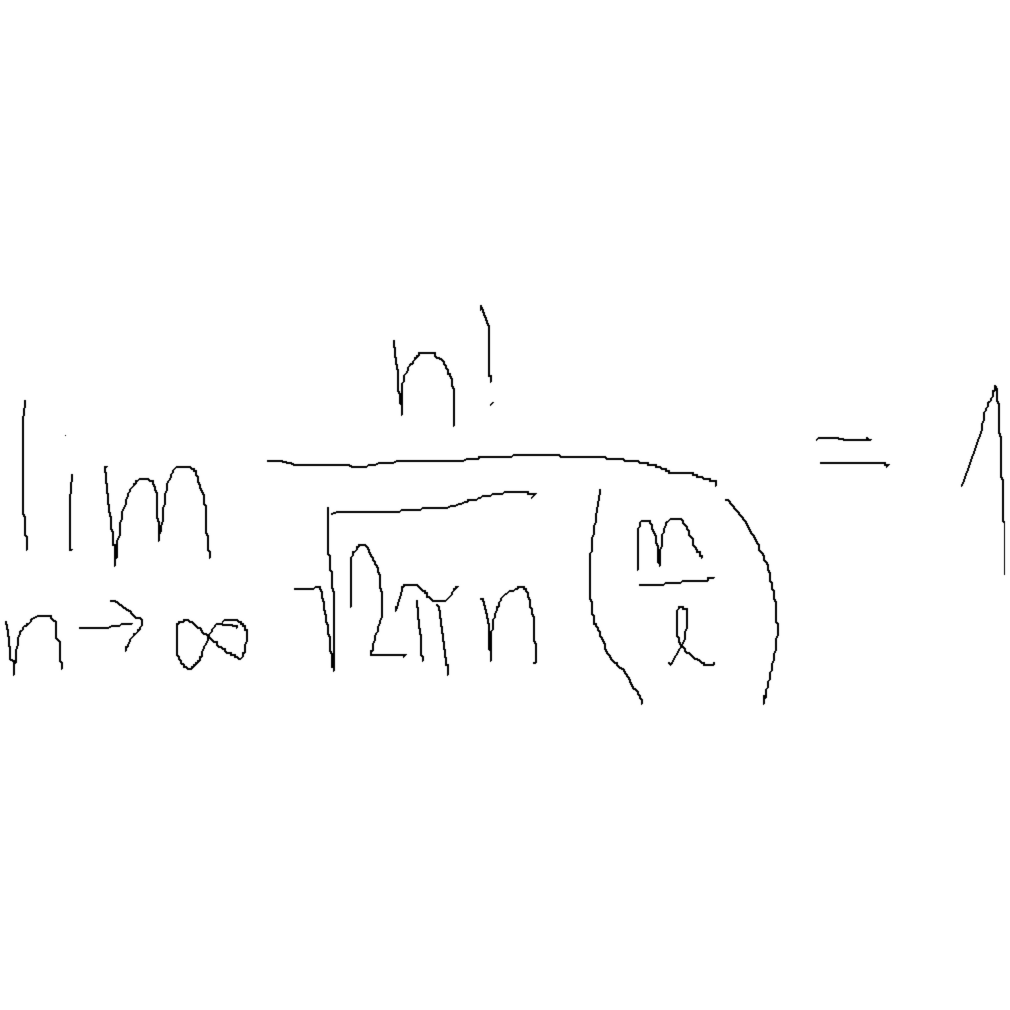 lim n→∞ n! / √(2πn) (n/e) = 1